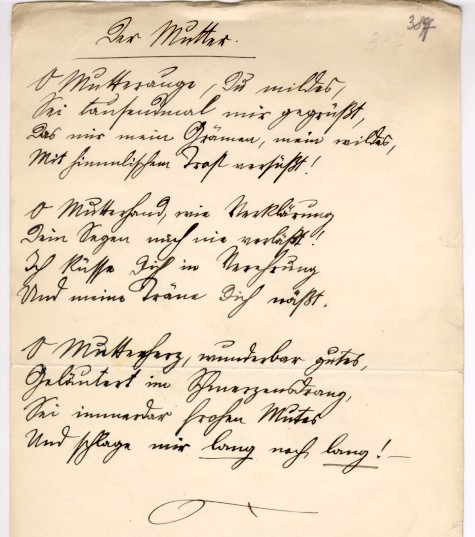 389
Der Mutter.
O Mutterauge, Du mildes,
Sei tausendmal mir gegrüßt,
Das mir mein Grämen, mein wildes,
Mit himmlischem Trost versüßt!
O Mutterhand, wie Verklärung
Dein Segen mich nie verläßt!
Ich küsse Dich in Verehrung
Und meine Träne Dich näßt.
O Mutterherz, wunderbar gutes,
Geläutert im Schmerzensdrang,
Sei immerdar frohen Mutes
Und schlage mir lang noch, lang! –